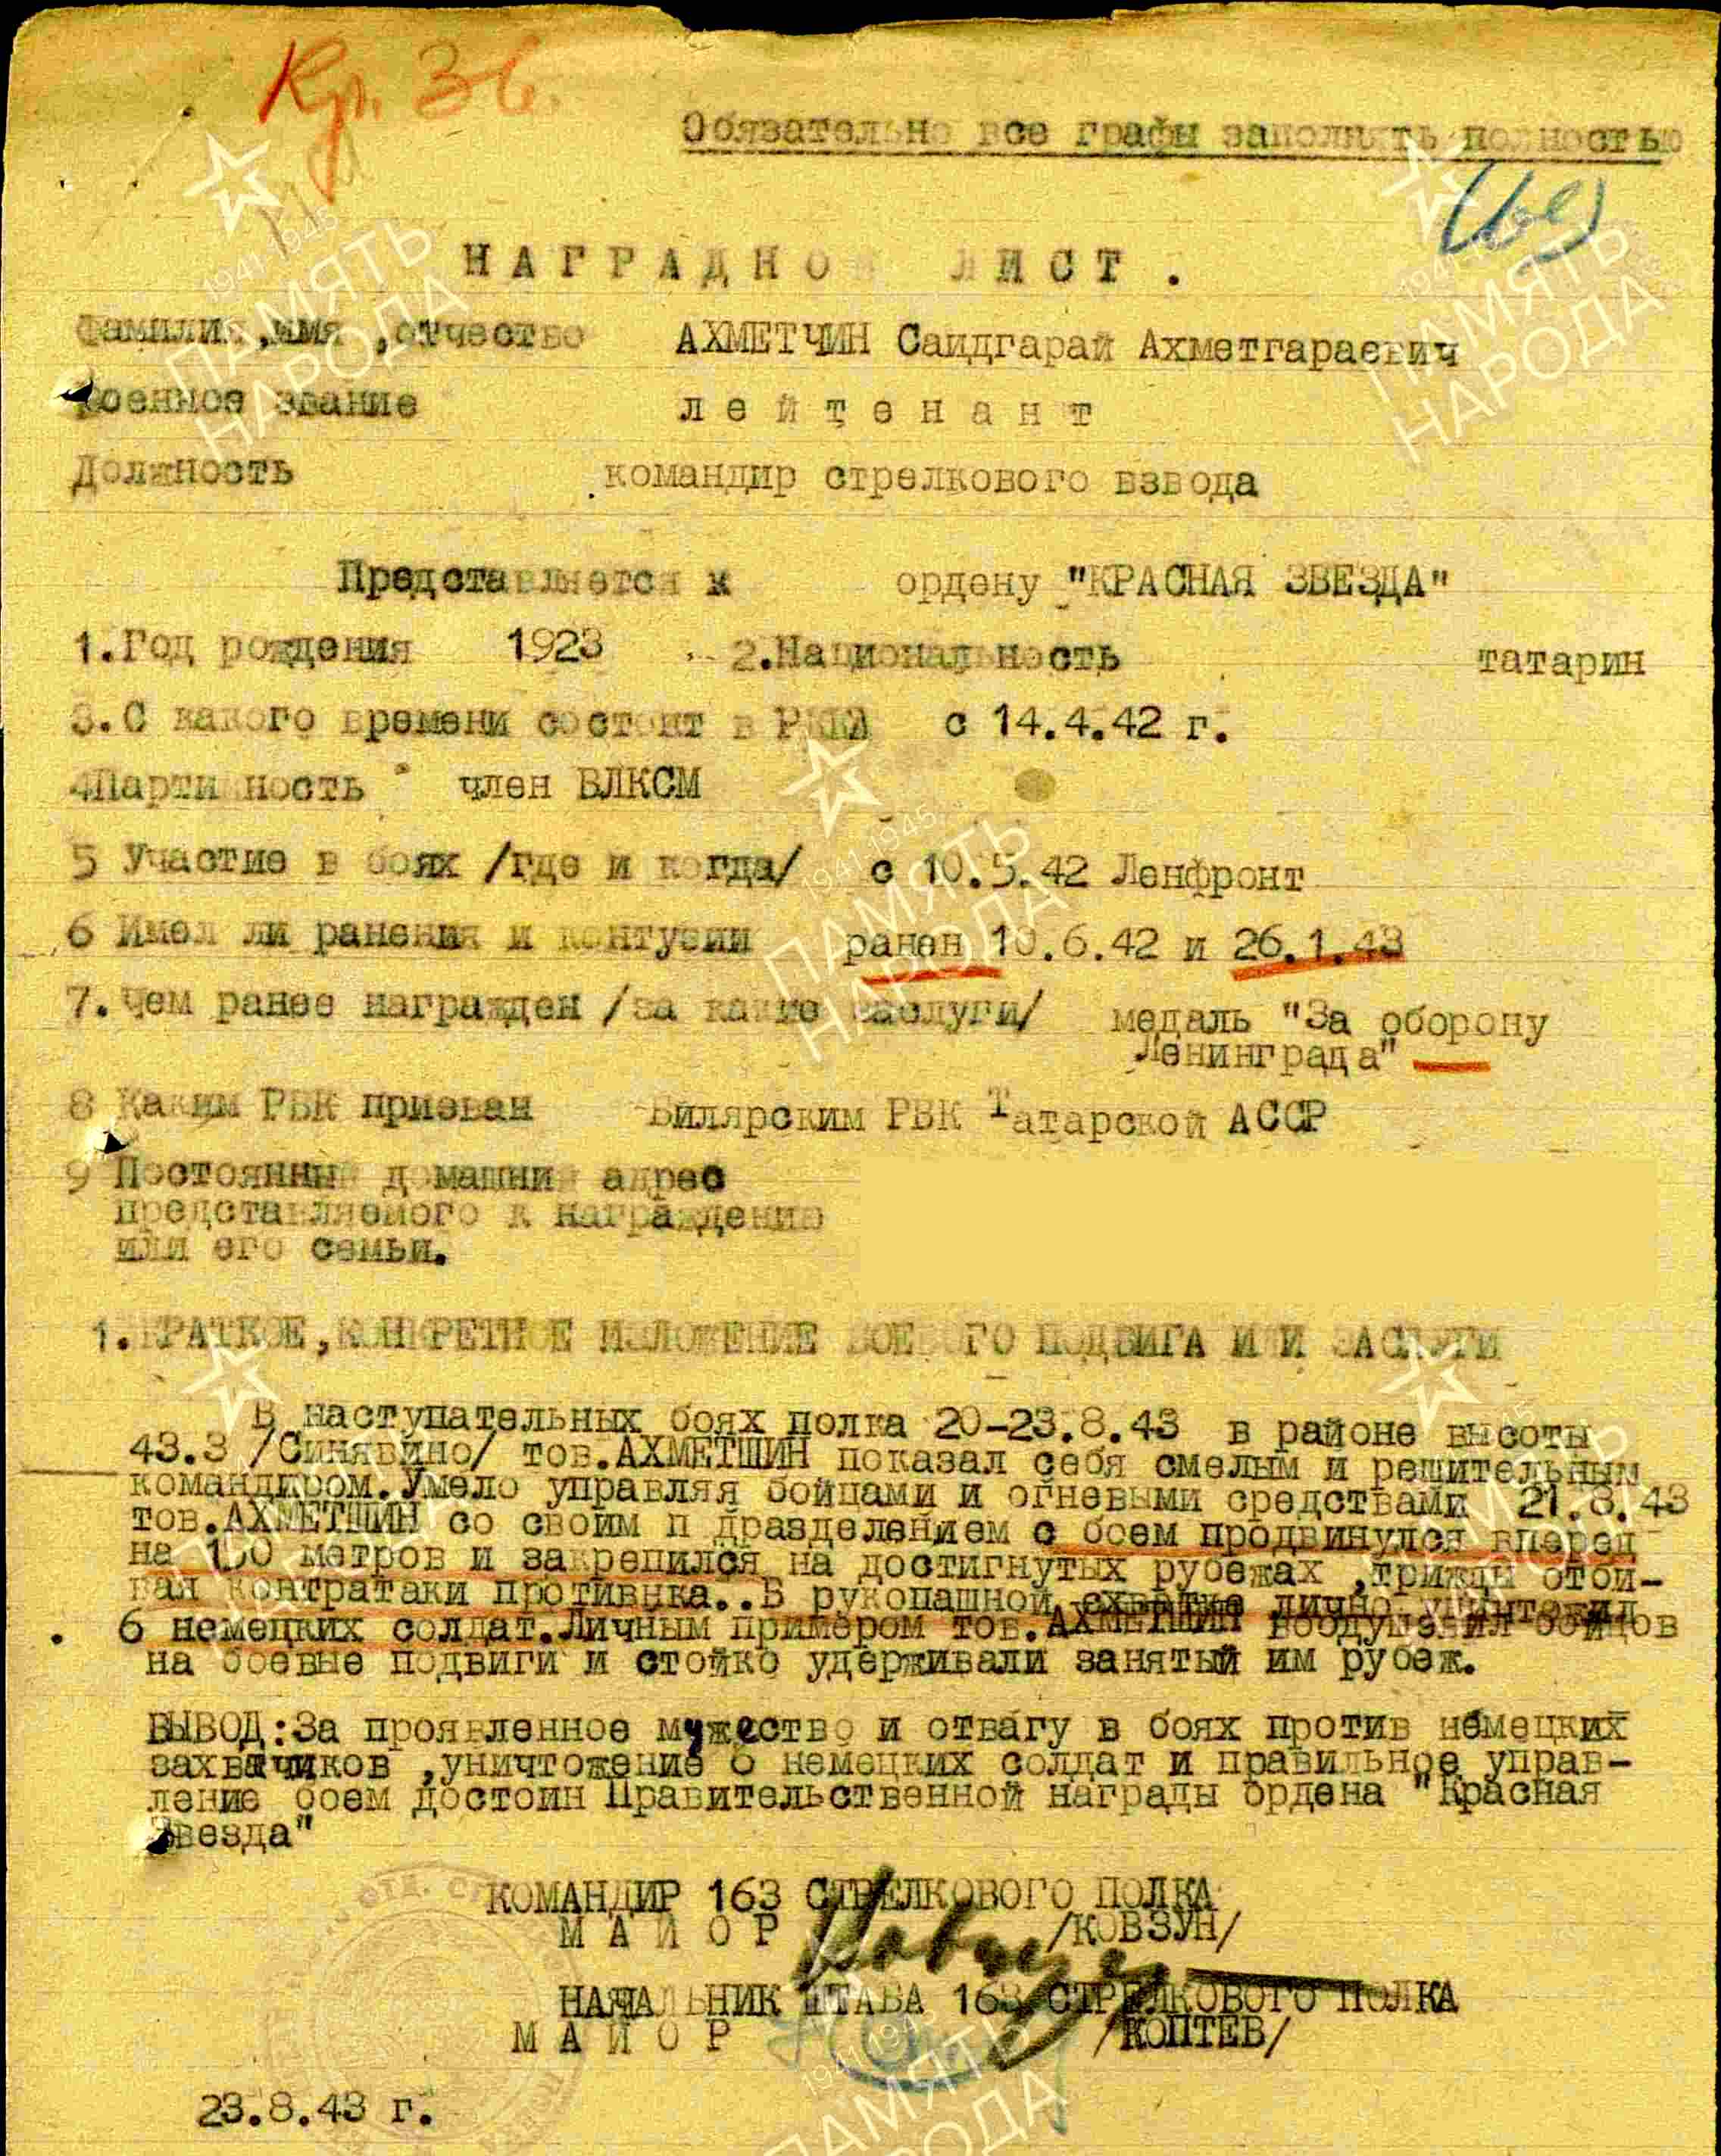 Кр. Зв.
Обязательно все графы заполнять полностью
НАГРАДНОЙ ЛИСТ.
Фамилия,имя ,отчество АХМЕТЧИН Саидгарай Ахметгараевич
Военное звание лейтенант
Должность командир стрелкового взвода
Представляется к ордену "КРАСНАЯ ЗВЕЗДА"
1.Год рождения 1923 2.Национальность татарин
3.С какого времени состоит в РККА с 14.4.42 г.
4Партийность член ВЛКСМ
5 Участие в боях /где и когда/ с 10.5.42 Ленфронт
6 Имел ли ранения и контузии ранен 10.6.42 и 26.1.43
7.Чем ранее награжден /за какие заслуги/ медаль "За оборону
Ленинграда"
8 Каким РВК призван Билярским РВК Татарской АССР
9 Постоянный домашний адрес
представляемого к награждению
или его семьи.
1.КРАТКОЕ,КОНКРЕТНОЕ ИЗЛОЖЕНИЕ БОЕВОГО ПОДВИГА ИЛИ ЗАСЛУГИ
В наступательных боях полка 20-23.8.43 в районе высоты
43.3 /Синявино/ тов.АХМЕТШИН показал себя смелым и решительным
командиром.Умело управляя бойцами и огневыми средствами 21.8.43
тов.АХМЕТШИН со своим п дразделением с боем продвинулся вперед
на метров и закрепился на достигнутых рубежах ,трижды отби-
вая контратаки противнка..В рукопашной схватке лично уничтожил
6 немецких солдат.Личным примером тов.АХМЕТШИН воодушевил бойцов
на боевые подвиги и стойко удерживали занятый им рубеж.
ВЫВОД:За проявленное мужество и отвагу в боях против немецких
захватчиков ,уничтожение 6 немецких солдат и правильное управ-
ление боем достоин Правительственной награды ордена "Красная
Звезда"
КОМАНДИР 163 СТРЕЛКОВОГО ПОЛКА
МАЙОР /КОВЗУН/
НАЧАЛЬНИК ШТАБА 163 СТРЕЛКОВОГО ПОЛКА
МАЙОР /КОПТЕВ/
23.8.43 г.
1941 1945
ПАМЯТЬ
НАРОДА